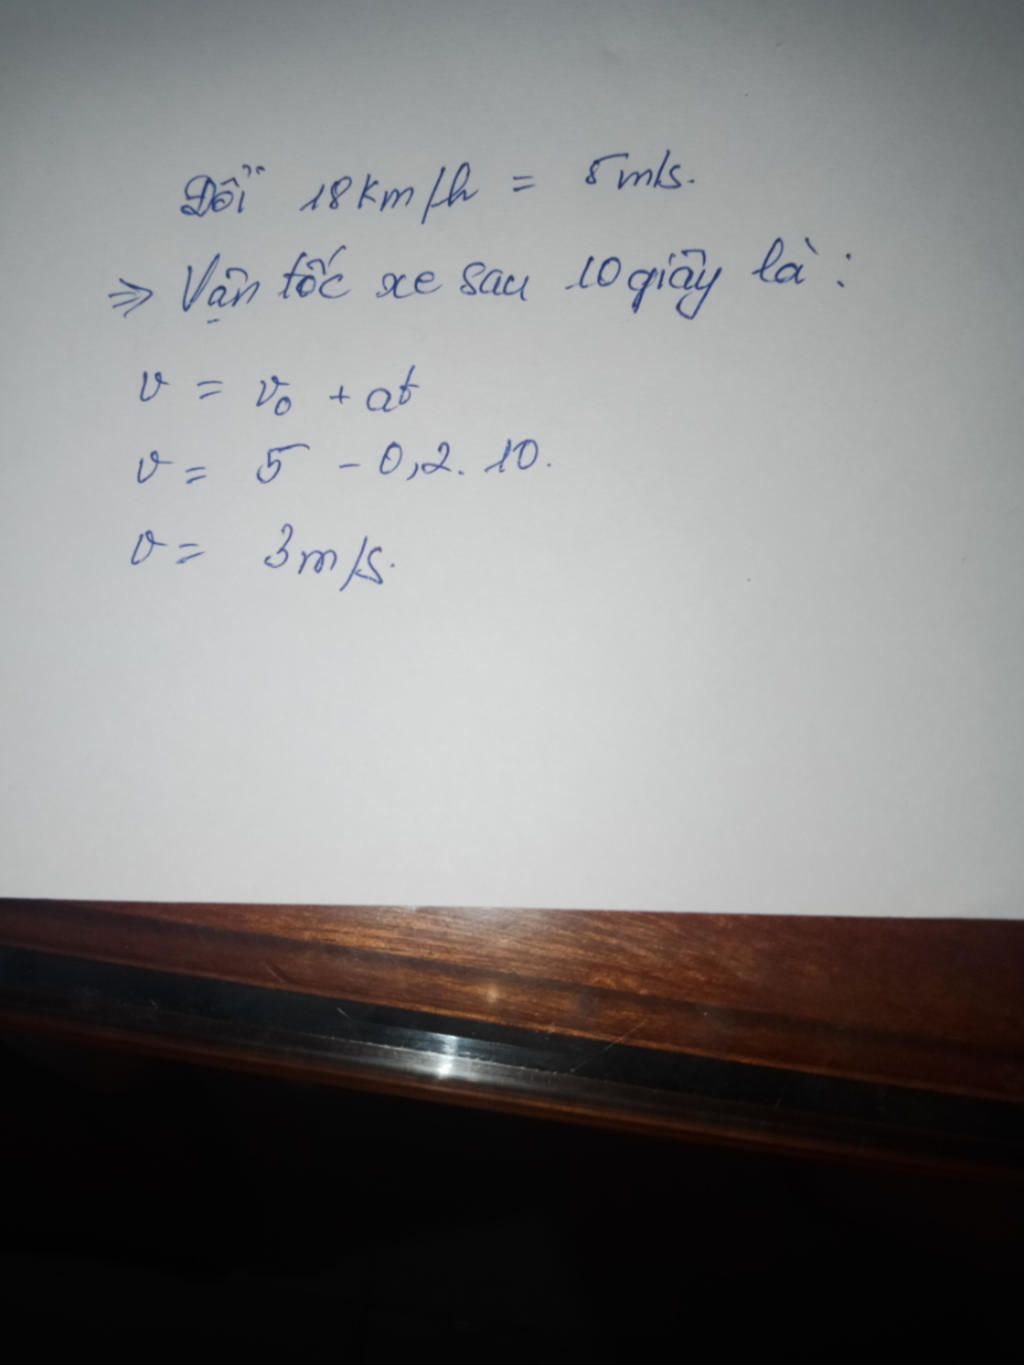 Đổi 18km/h = 5m/s.
=> Vận tốc xe sau 10 giây là:
v = v₀ + at
v = 5 - 0,2. 10.
v = 3m/s.